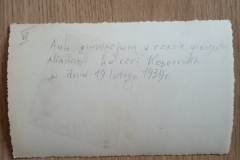 VI
Aula gimnazjum w czasie uroczystej
akademii ku czci Kopernika
w dniu 19 lutego 1939r.